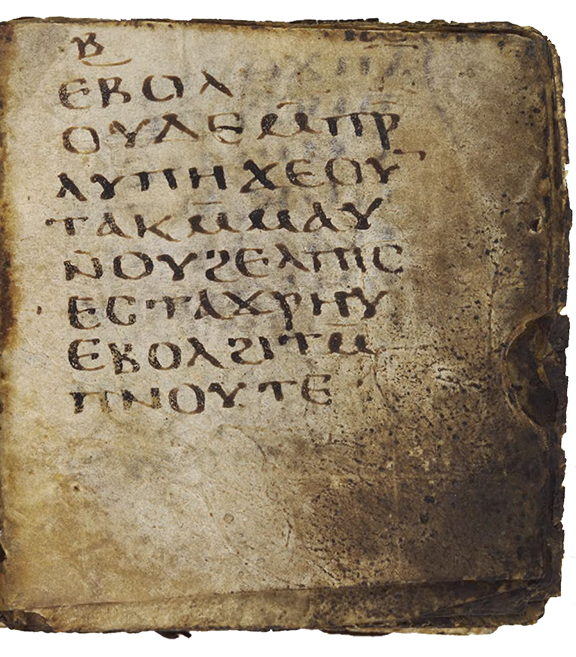 ⲃ̅
ⲉⲃⲟⲗ
ⲟⲩⲇⲉ ⲙ̅ⲡⲣ̅
ⲗⲩⲡⲏ ϫⲉ ⲟⲩ
ⲧⲁⲕ ⲙ̅ⲙⲁⲩ
ⲛ̅ⲟⲩϩⲉⲗⲡⲓⲥ
ⲉⲥⲧⲁϫⲣⲏⲩ
ⲉⲃⲟⲗ ϩⲓⲧⲙ̅
ⲡⲛⲟⲩⲧⲉ